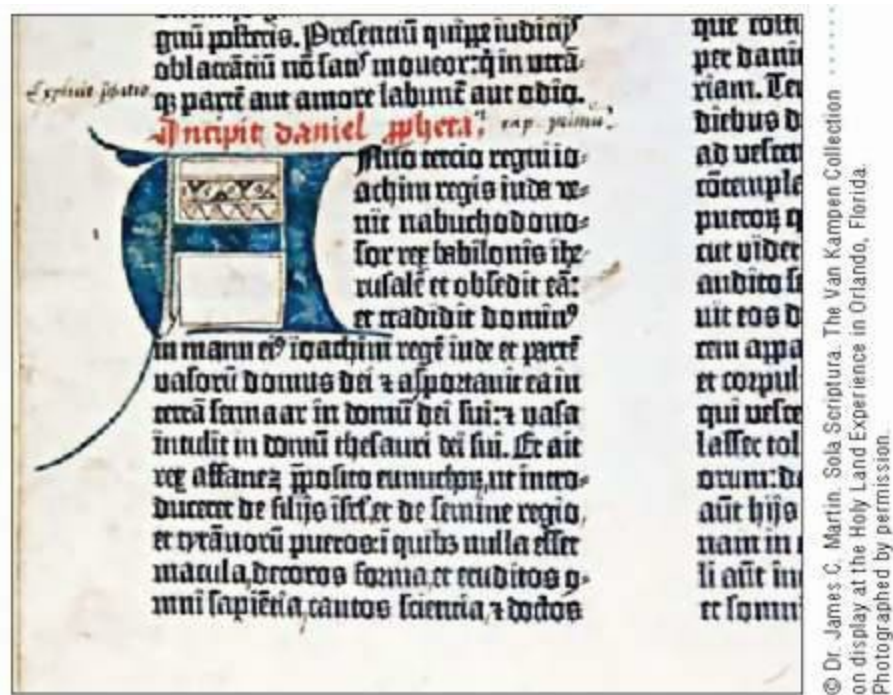 guū posteris. Presentiū quippe iudicijꝰ
oblatrātiū nō satꝭ moueor: q̄ in utrā⸗
qꝫ partē aut amore labunt̄ aut odio.
Explicit
Incipit daniel ꝓpheta. cap. primū
Anno tercio regni io⸗
achim regis iuda ve⸗
nit nabuchodono⸗
sor rex babilonis ihe⸗
rusalē et obsedit eā:
et tradidit dominꝰ
in manu eiꝰ ioachim regē iude et partē
vasorū domus dei ⁊ asportauit ea in
terrā sennaar in domū dei sui: ⁊ vasa
intulit in domū thesauri dei sui. Et ait
rex affanez p̄posito eunuchoꝝ, ut intro⸗
duceret de filijs isrl̄, et de semine regio,
et tyrānorū pueros: ī quibꝫ nulla esset
macula, decoros forma, et eruditos o⸗
mni sapiētia, cautos sciencia, ⁊ doctos
que
per dani
riam.
diebus d
ad vescen
cōtempla
pueroꝝ q
cut vider
audito
uit eos d
rem appa
et corpul
qui vesce
lasser tol
orum: de
aūt hijs
nam in
li aūt in
et somni
© Dr. James C. Martin. Sola Scriptura. The Van Kampen Collection
on display at the Holy Land Experience in Orlando, Florida.
Photographed by permission.